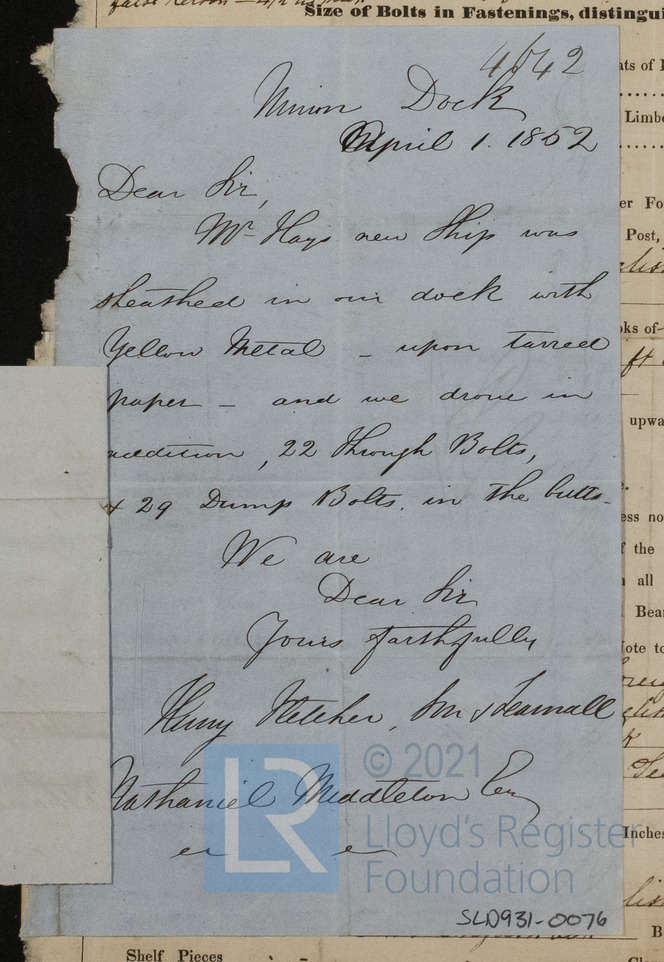 Size of Bolts in Fastenings, distingui
4542
Union Dock
April 1. 1852
Dear Sir,
Mr Hays new Ship was
sheathed in our dock with
Yellow Metal – upon tarred
paper – and we drove in
addition, 22 through Bolts,
& 29 Dump Bolts. in the butts–
We are
Dear Sir
Yours faithfully
Henry Fletcher, Son & Fearnall
Nathaniel Middleton Esq
LR
© 2021
Lloyd's Register
Foundation
SLD931-0076
Shelf Pieces
ats of
Limbe
er Fo
Post,
ks of
ft
upwa
ess no
f the
all
Bear
ote to
Inches
B